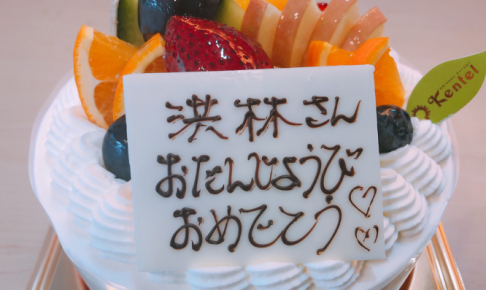 洪林さん
おたんじょうび
おめでとう♡♡
Kentel